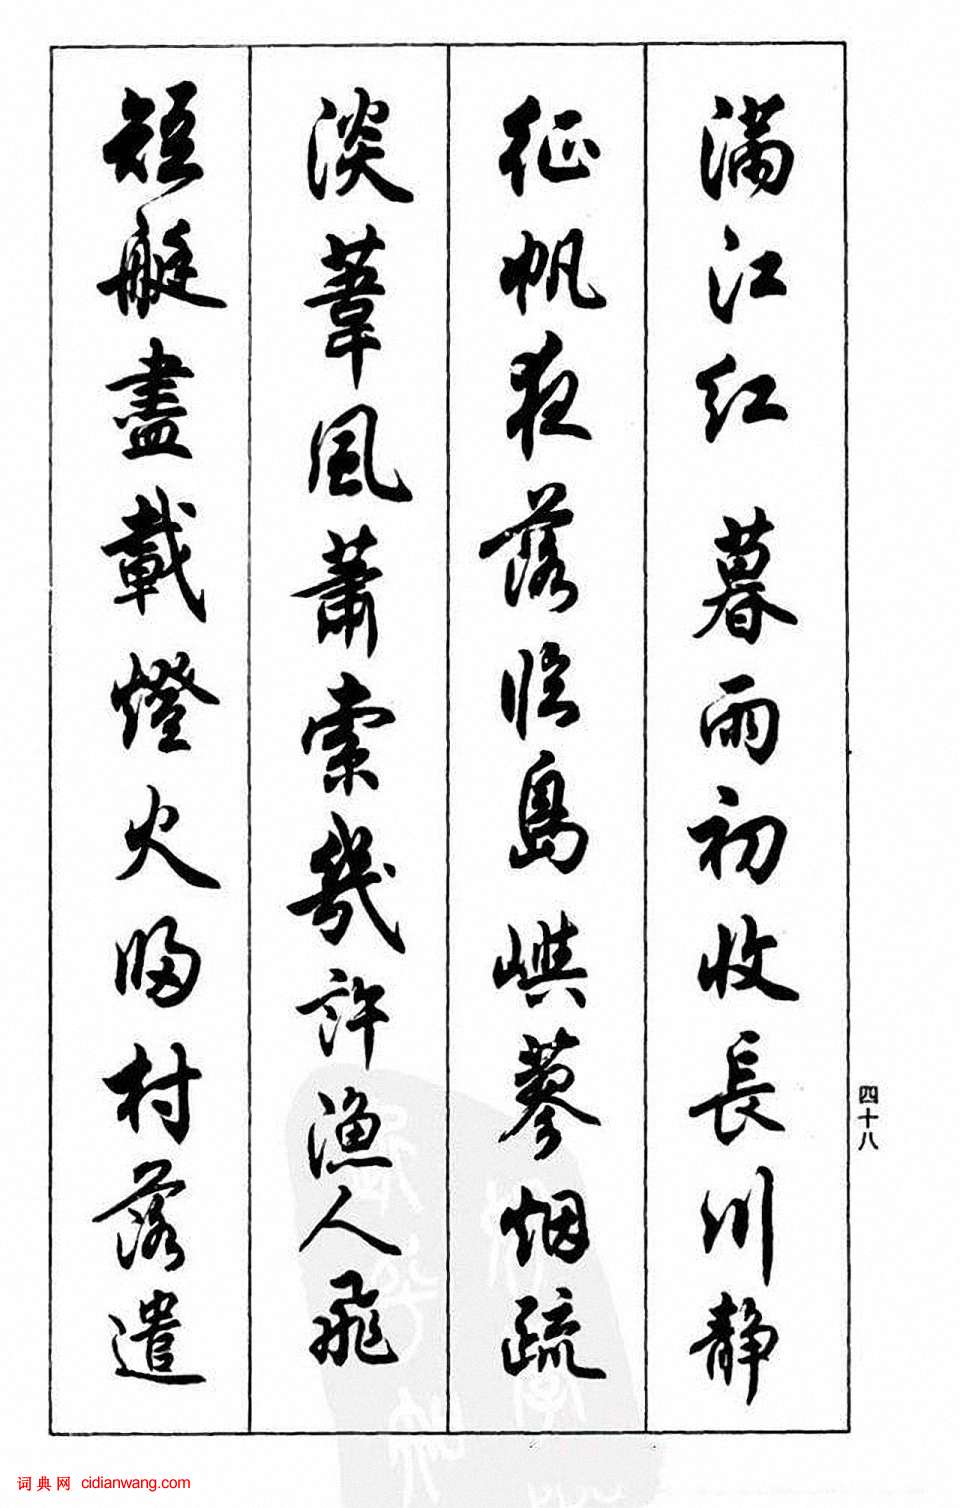 满江红 暮雨初收長川静
征帆夜落临島嶼蓼烟疏
淡葦風蕭索幾許漁人飛
短艇盡載燈火歸村落遣
四十八
词典网 cidianwang.com